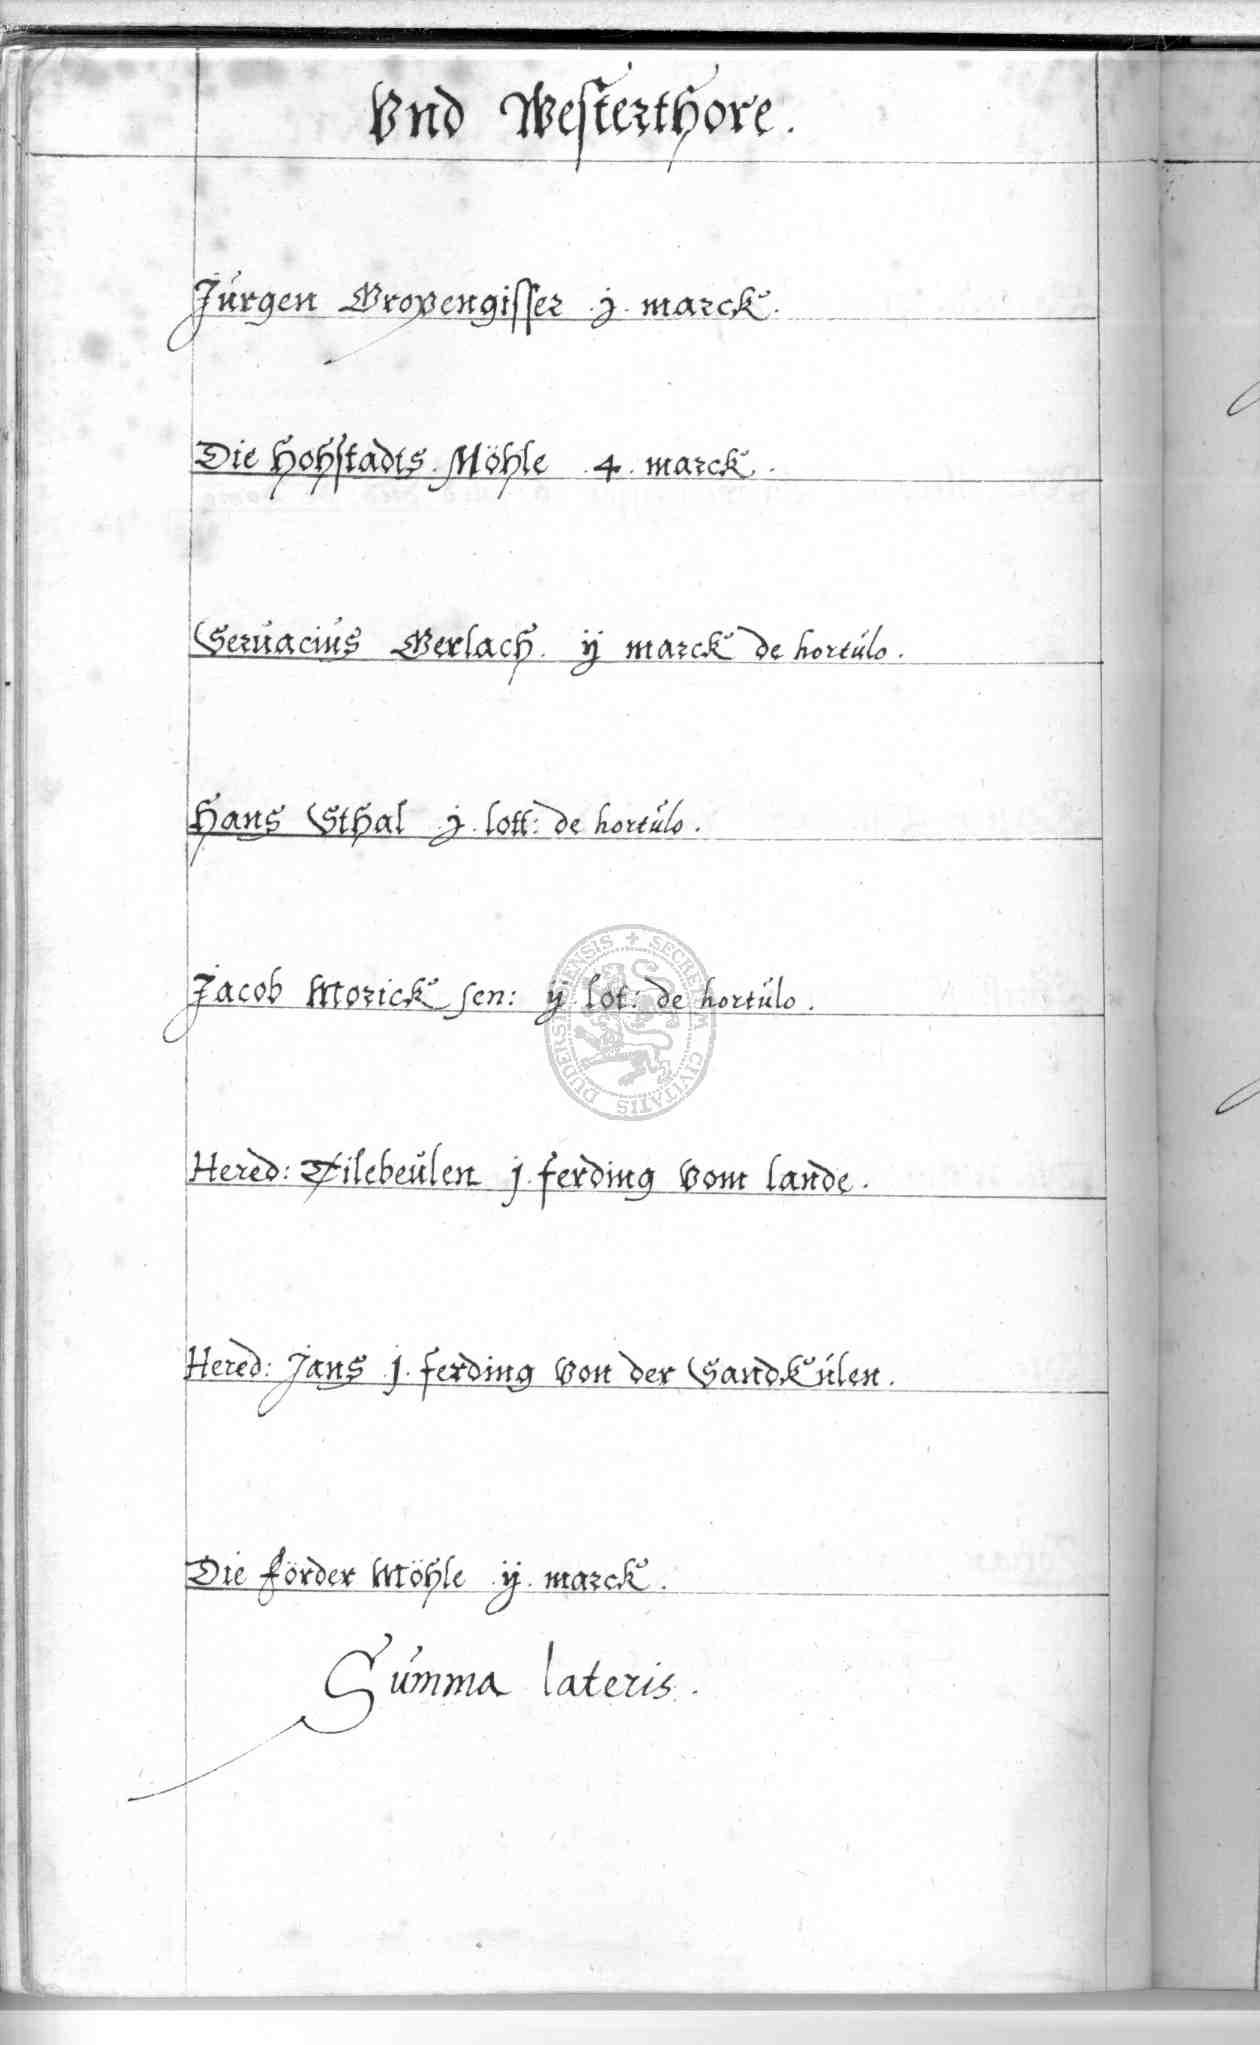 Vnd Westerthore.
Jürgen Gropengisser .j. marck.
Die Hohstadts Möhle .4. marck.
Servacius Gerlach. ij marck de hortulo.
Hans Sthal .j. lott: de hortulo.
Jacob Morick sen: ij lot: de hortulo.
Hered: Tilebeulen j. ferding vom lande.
Hered: Jans .j. ferding von der Sandkulen.
Die förder Möhle .ij. marck.
Summa lateris.
SECRETUM CIVITATIS DUDERSTADENSIS